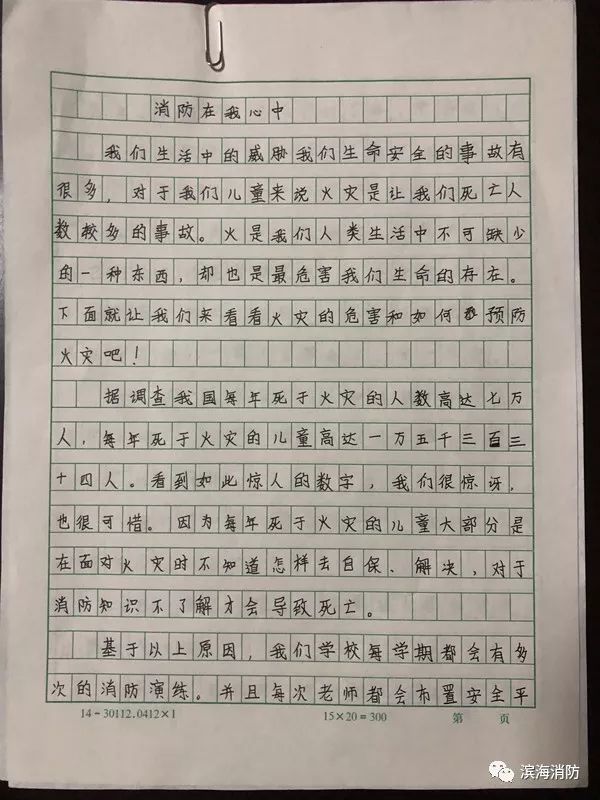 消防在我心中
我们生活中的威胁我们生命安全的事故有
很多，对于我们儿童来说火灾是让我们死亡人
数较多的事故。火是我们人类生活中不可缺少
的一种东西，却也是最危害我们生命的存在。
下面就让我们来看看火灾的危害和如何预防
火灾吧！
据调查我国每年死于火灾的人数高达七万
人，每年死于火灾的儿童高达一万五千三百三
十四人。看到如此惊人的数字，我们很惊讶，
也很可惜。因为每年死于火灾的儿童大部分是
在面对火灾时不知道怎样去自保、解决，对于
消防知识不了解才会导致死亡。
基于以上原因，我们学校每学期都会有多
次的消防演练。并且每次老师都会布置安全平
14－30112.0412×1 15×20＝300 第 页
滨海消防